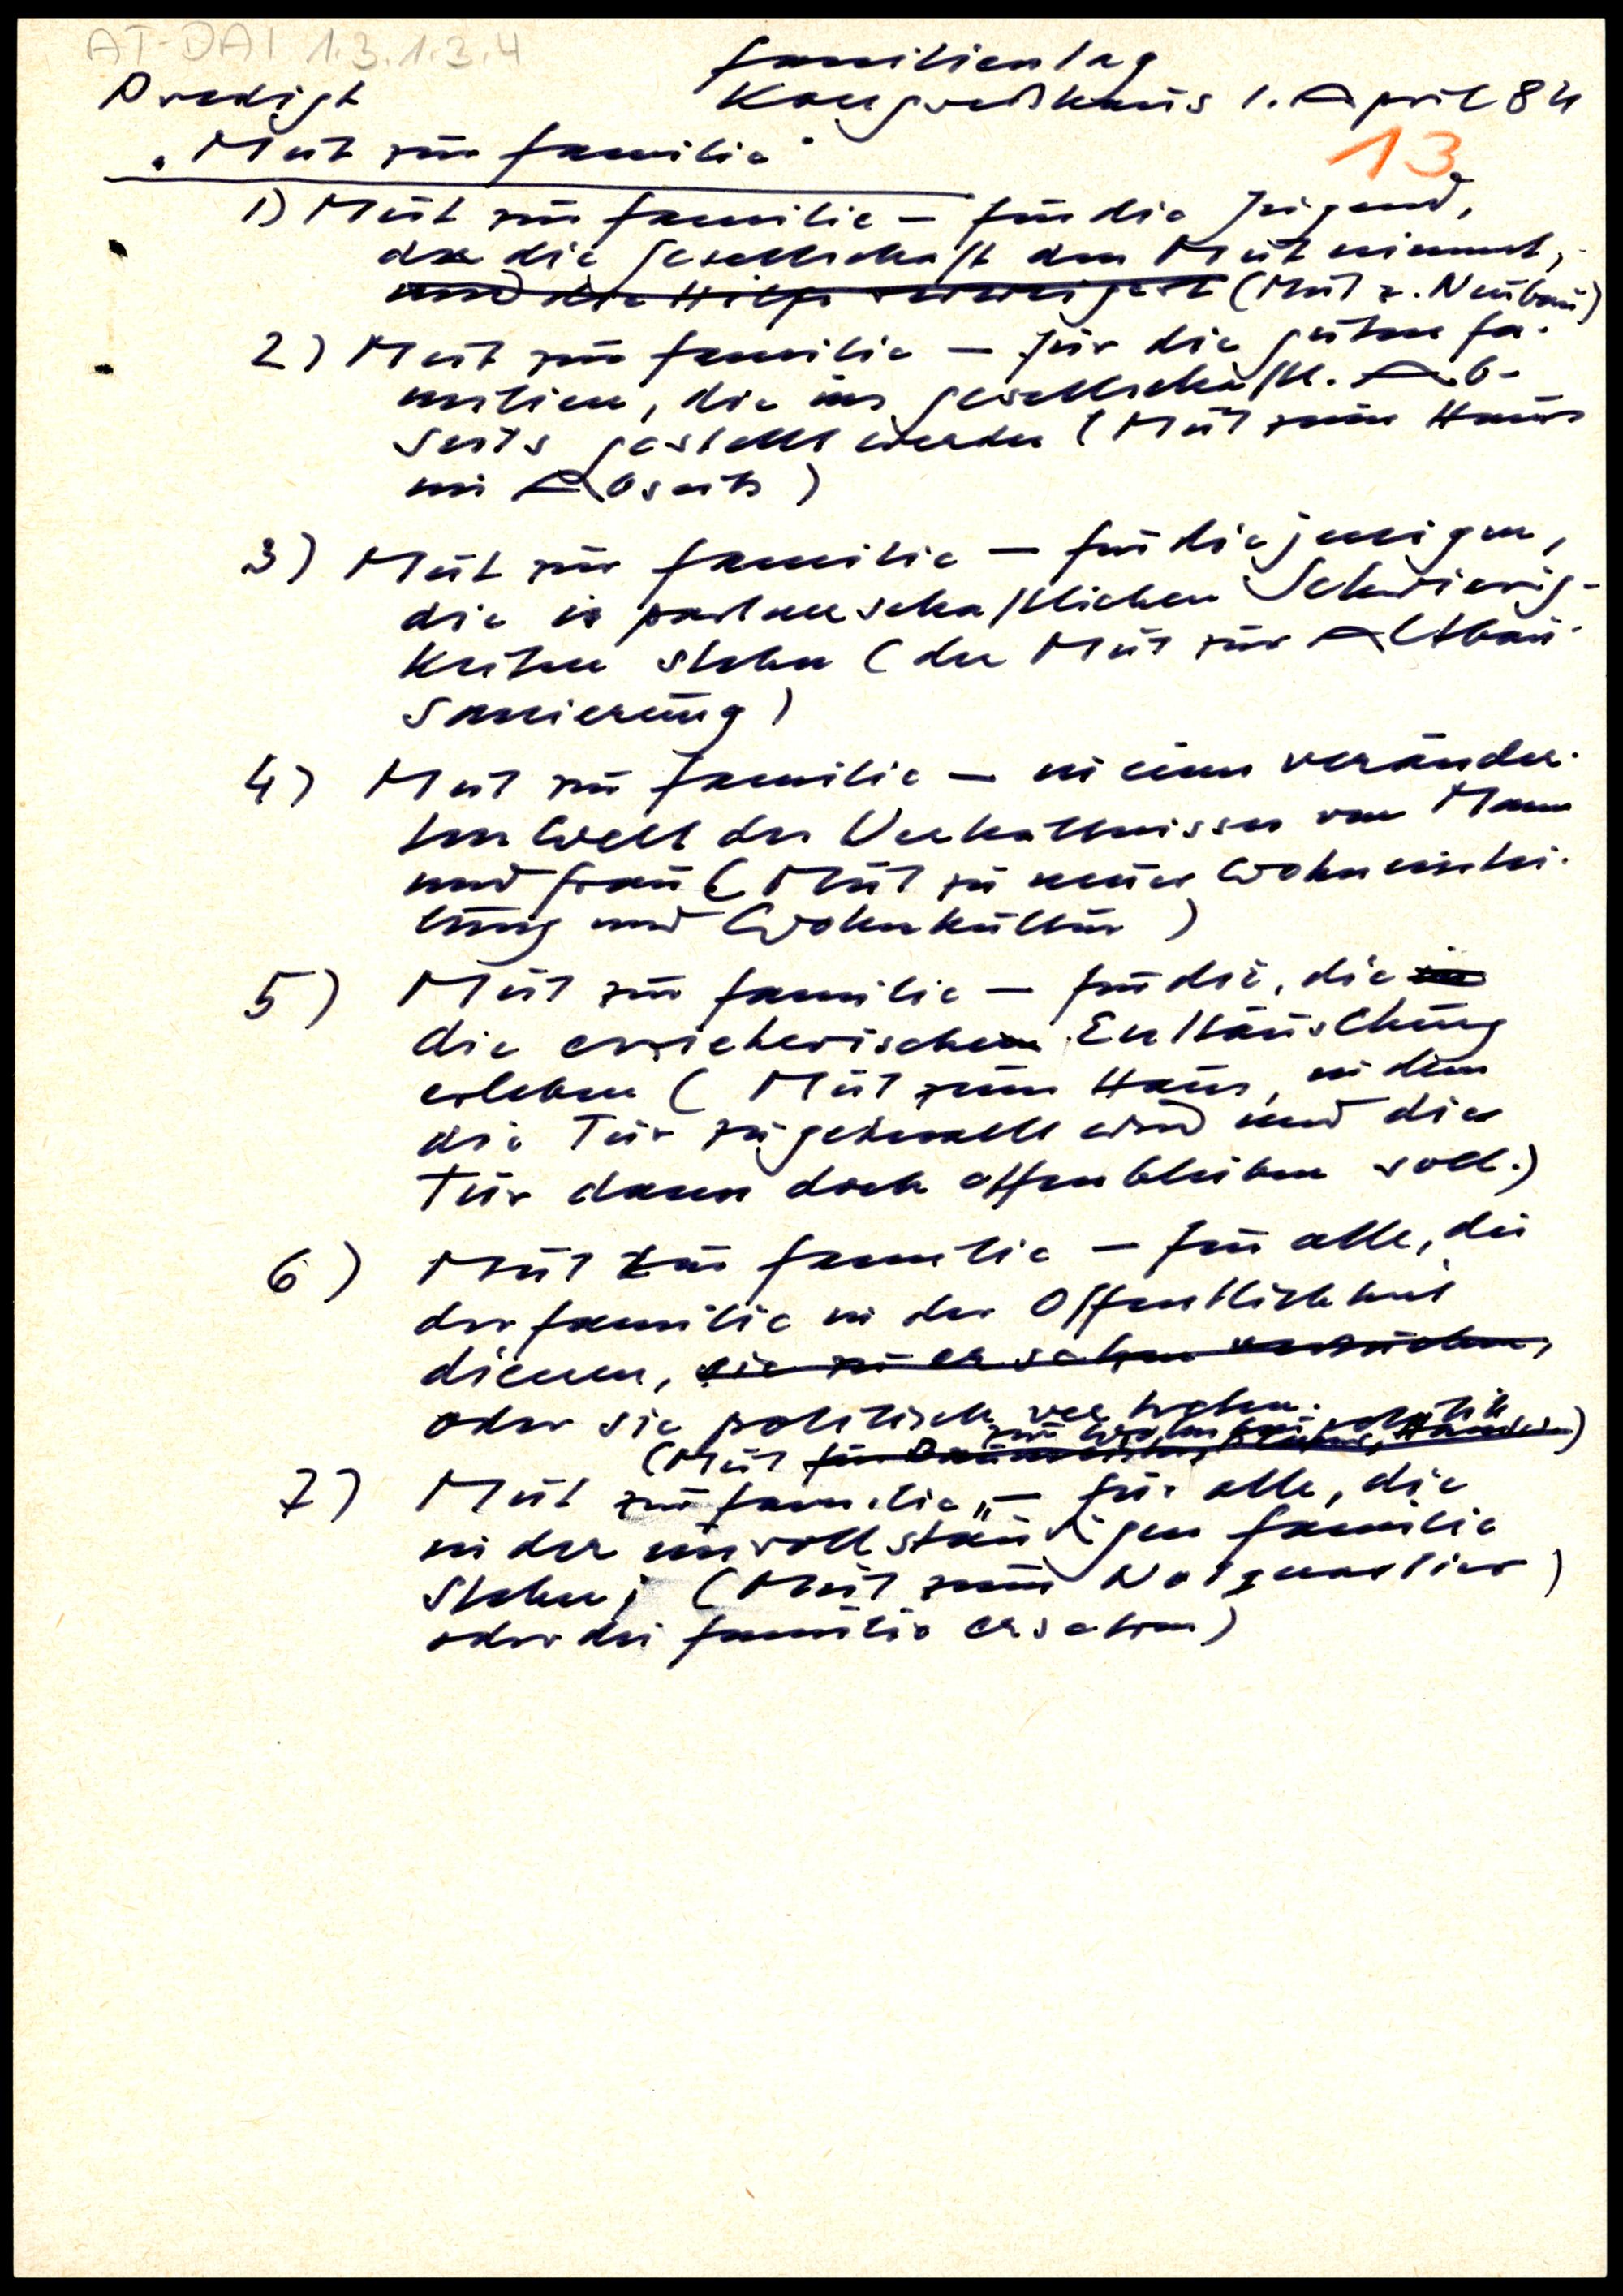 AT-DAI 1.3.1.3.4
Familientag
Predigt Kongreßhaus 1. April 84
13
"Mut zur Familie"
1) Mut zur Familie – für die Jugend,
der die Gesellschaft den Mut nimmt,
und die Hilfe verweigert (Mut z. Neubau)
2) Mut zur Familie – für die guten Fa-
milien, die ins gesellschaftl. Ab-
seits gestellt werden (Mut zum Haus
im Abseits)
3) Mut zur Familie – für diejenigen,
die in partnerschaftlichen Schwierig-
keiten stehen (der Mut zur Altbau-
sanierung)
4) Mut zur Familie – in einer veränder-
ten Welt der Verhältnisse von Mann
und Frau (Mut zu neuer Wohneintei-
lung und Wohnkultur)
5) Mut zur Familie – für die, die in
die erzieherischen Enttäuschung
erleben (Mut zum Haus, in dem
die Tür zugeknallt wird und die
Tür dann doch offen bleiben soll.)
6) Mut zur Familie – für alle, die
der Familie in der Öffentlichkeit
dienen, sie zu ersetzen versuchen,
oder sie politisch vertreten.
zur Wohnbaupolitik
(Mut für Baumeister,
7) Mut zur Familie" – für alle, die
in der unvollständigen Familie
stehen; (Mut zum Notquartier)
oder die Familie ersetzen)